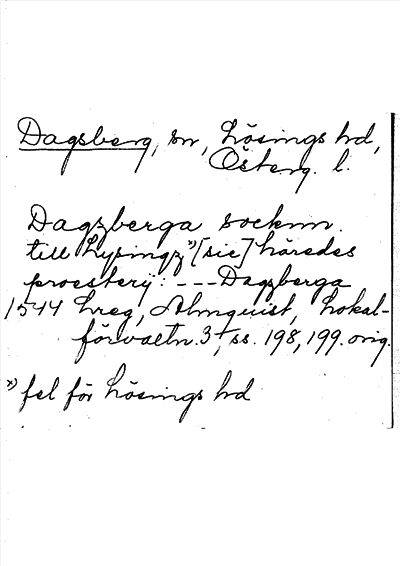 Dagsberg, sn, Lösings hd,
Österg. l.
Dagzberga socknn.
till Lysingz *) [sic] häredes
proesterij: --- Dagzberga
1544 hreg, Almquist, Lokal-
förvaltn. 3:1, ss. 198, 199. orig.
*) fel för Lösings hd